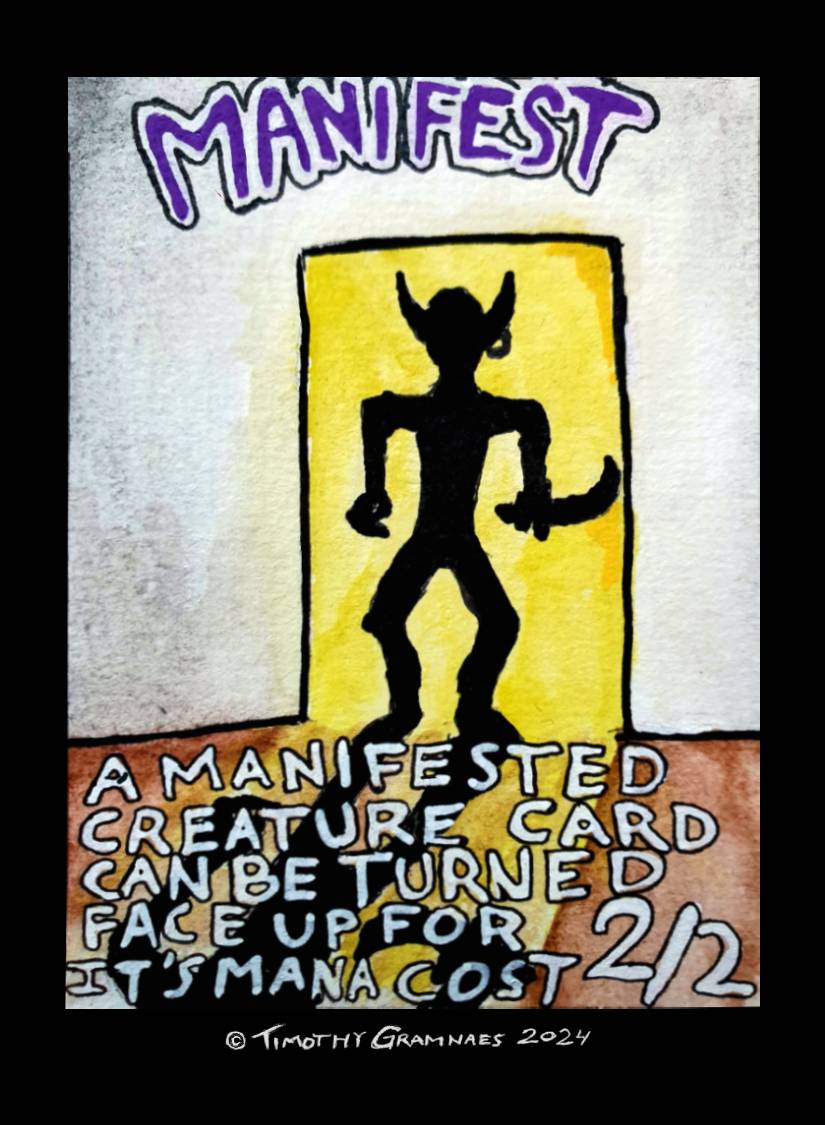 MANIFEST
A MANIFESTED
CREATURE CARD
CAN BE TURNED
FACE UP FOR
IT'S MANA COST 2/2
© TIMOTHY GRAMNAES 2024